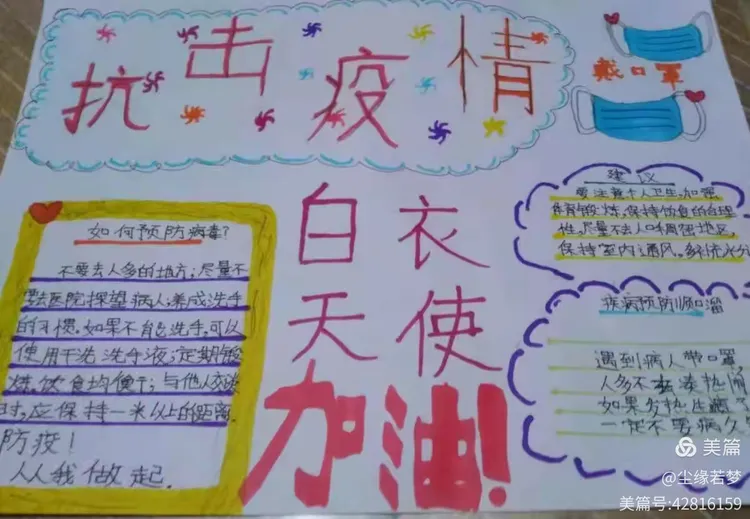 抗击疫情
戴口罩
如何预防病毒?
不要去人多的地方;尽量不
要去医院探望病人养成洗手
的习惯.如果不能洗手,可以
使用干洗洗手液;定期锻
炼,饮食均衡;与他人交谈
时,应保持一米以上的距离.
防疫!
人人我做起.
白衣
天使
加油!
建议
要注意个人卫生,加强
体育锻炼,保持饮食的合理
性,尽量不去人口稠密地区,
保持室内通风。多喝水分
疾病预防顺口溜
遇到病人带口罩
人多不要凑热闹
如果发热
一定不要病久
美篇
@尘缘若梦
美篇号:42816159